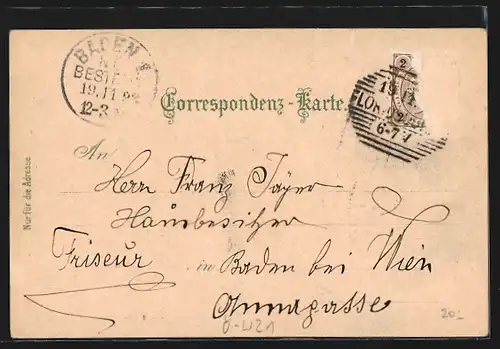 BADEN
N.
BESTE
19.11.98
12-3
2
19
6-7
Correspondenz-Karte.
An
Herrn Franz Jäger
Hausbesitzer
Friseur in Baden bei Wien
Annagasse
Nur für die Adresse.
20.-